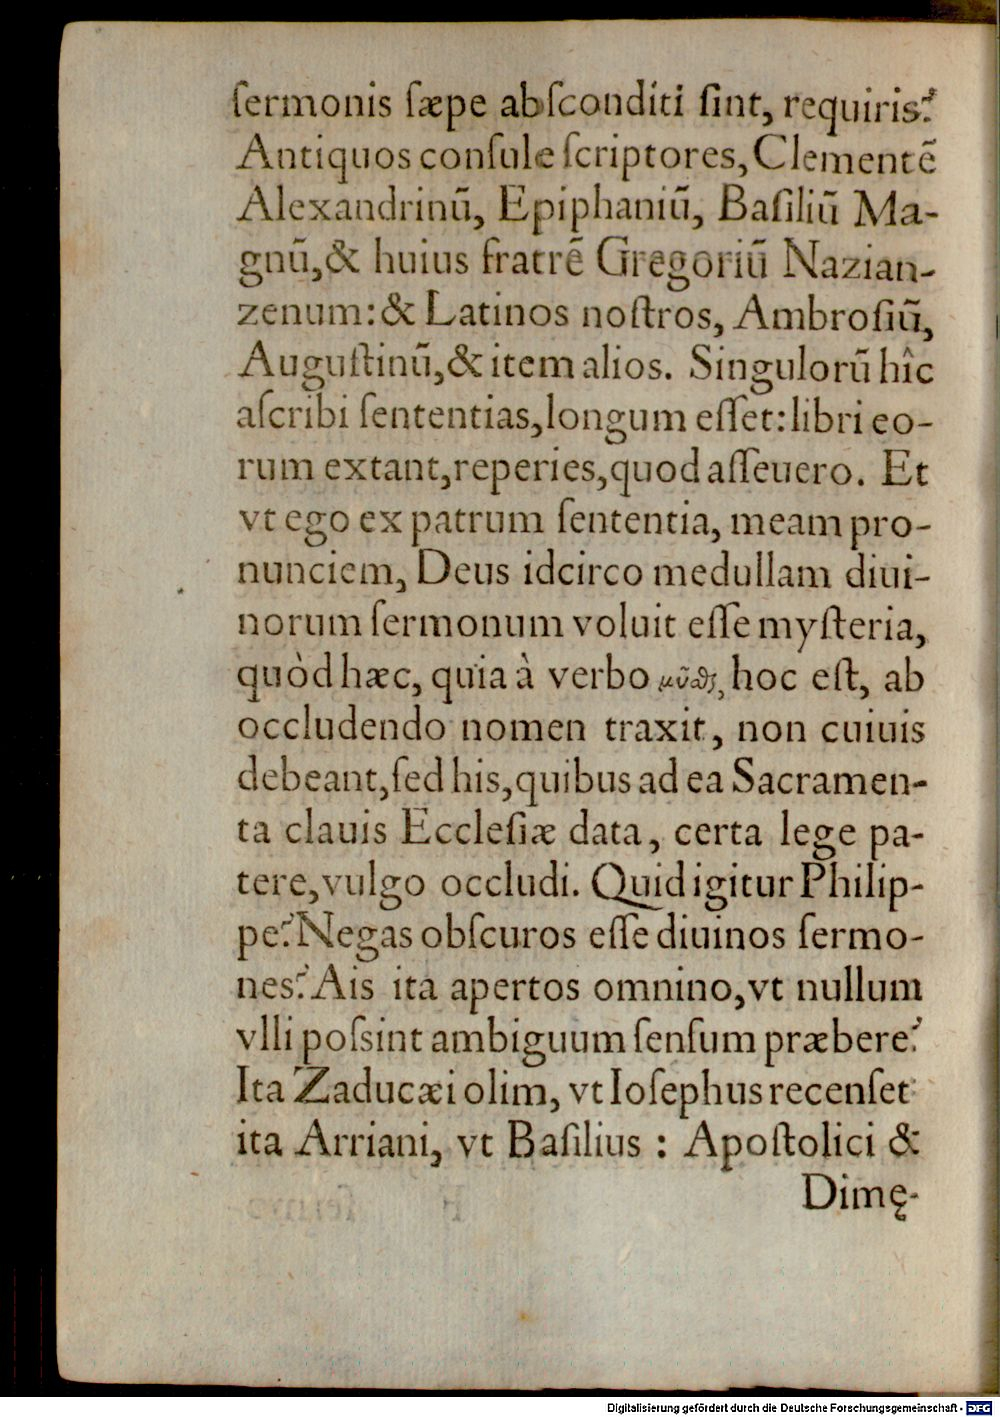 ſermonis ſæpe abſconditi ſint, requiris?
Antiquos conſule ſcriptores, Clementẽ
Alexandrinũ, Epiphaniũ, Baſiliũ Ma-
gnũ, & huius fratrẽ Gregoriũ Nazian-
zenum: & Latinos noſtros, Ambroſiũ,
Auguſtinũ, & item alios. Singulorũ hîc
aſcribi ſententias, longum eſſet: libri eo-
rum extant, reperies, quod aſſeuero. Et
vt ego ex patrum ſententia, meam pro-
nunciem, Deus idcirco medullam diui-
norum ſermonum voluit eſſe myſteria,
quòd hæc, quia à verbo hoc eſt, ab
occludendo nomen traxit, non cuiuis
debeant, ſed his, quibus ad ea Sacramen-
ta clauis Eccleſiæ data, certa lege pa-
tere, vulgo occludi. Quid igitur Philip-
pe? Negas obſcuros eſſe diuinos ſermo-
nes? Ais ita apertos omnino, vt nullum
vlli poſsint ambiguum ſenſum præbere?
Ita Zaducæi olim, vt Ioſephus recenſet
ita Arriani, vt Baſilius : Apoſtolici &
Dimę-
Digitalisierung gefördert durch die Deutsche Forschungsgemeinschaft - DFG